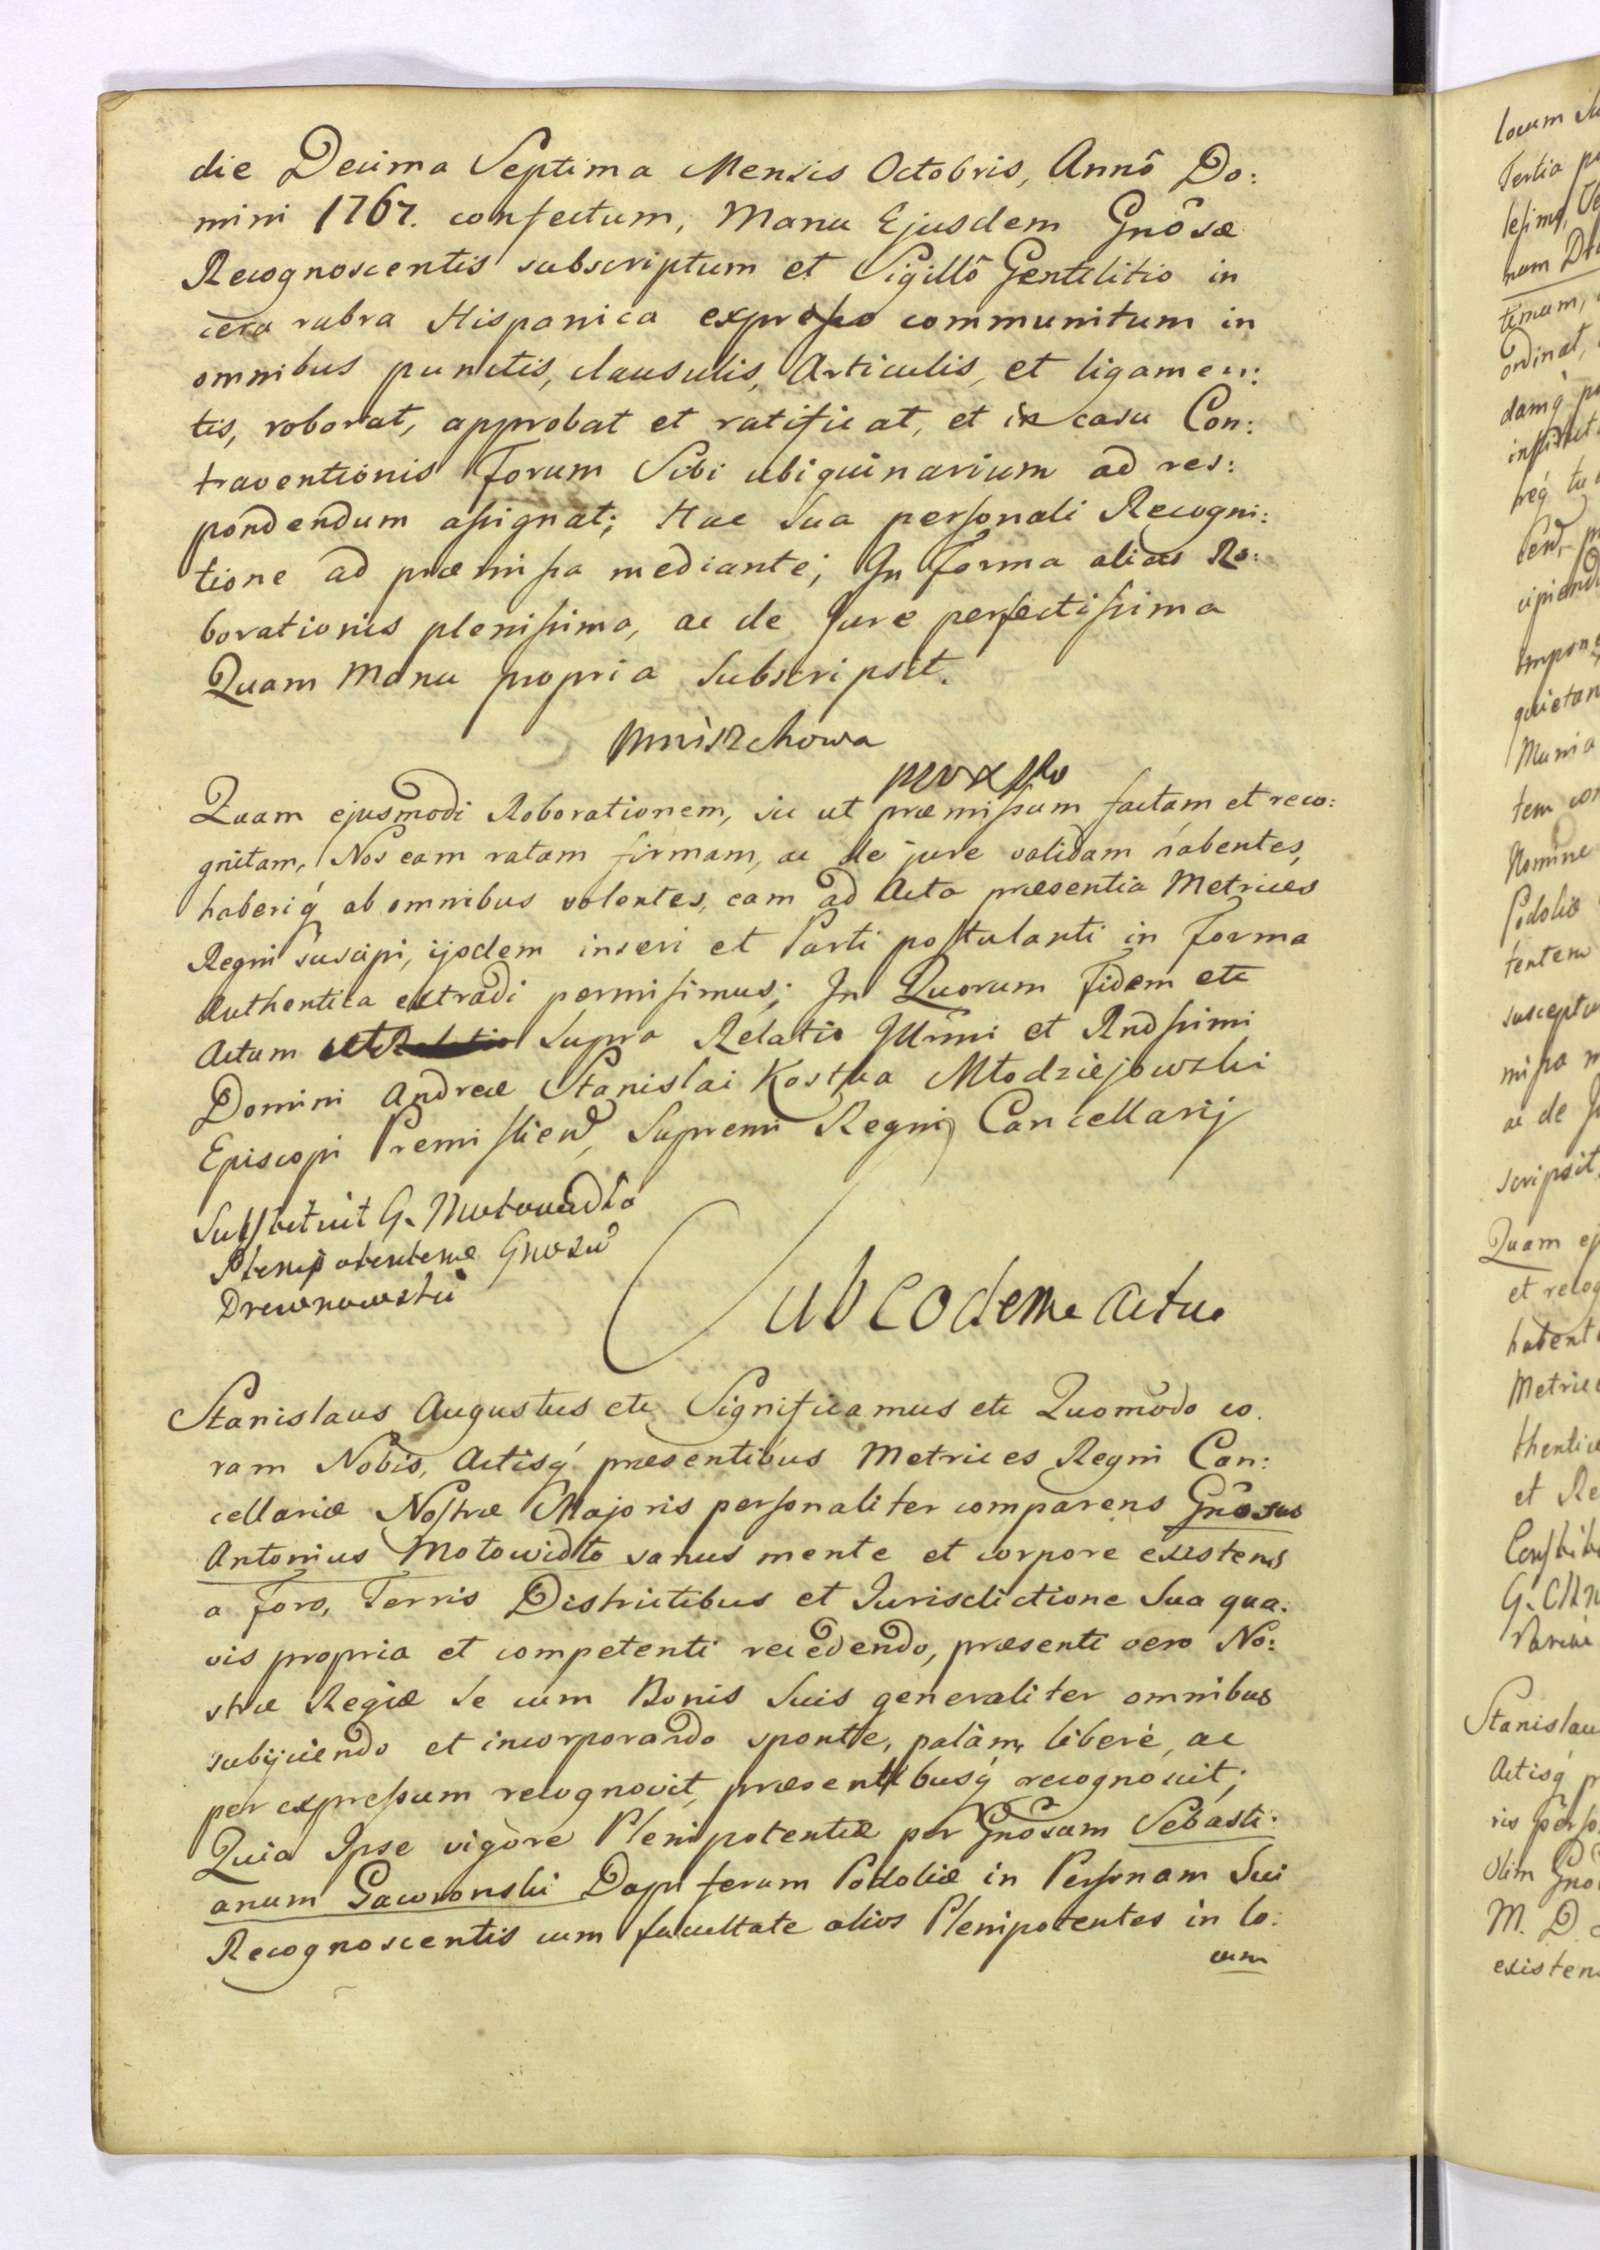 die Decima Septima Mensis Octobris, Annô Do:
mini 1767. confectum, Manu Ejusdem Gnôsæ
Recognoscentis subscriptum et Sigillô Gentilitio in
cera rubra Hispanica expresso communitum in
omnibus punctis, clausulis, Articulis, et ligamen:
tis, roborat, approbat et ratificat, et in casu Con:
traventionis Forum Sibi ubiquinarium ad res:
pondendum assignat; Hac Sua personali Recogni:
tione ad præmissa mediante; In Forma alias Ro:
borationis plenissima, ac de Jure perfectissima
Quam Manu propria Subscripsit.
Mniszchowa
Quam ejusmodi Roborationem, sic ut præmissum factam et reco:
gnitam, Nos eam ratam firmam, ac de jure validam habentes,
haberiq́ ab omnibus volentes, eam ad Acta præsentia Metrices
Regni suscipi, ijsdem inseri et Parti postulanti in Forma
Authentica extradi permisimus; In Quorum Fidem etc
Actum Supra Relatio Illrmi et Rndssimi
Domini Andreæ Stanislai Kostka Młodziejowski
Episcopi Premislien, Supremi Regni Cancellarij
Substituit G. Motowidło
Plenipotentem Gnosu
Drewnowski
Sub eodem actu
Stanislaus Augustus etc Significamus etc Quomodo co.
ram Nobis, Actisq́ præsentibus Metrices Regni Can:
cellariæ Nostræ Majoris personaliter comparens Gnôsus
Antonius Motowidło sanus mente et corpore existens
a Foro, Terris Districtibus et Jurisdictione Sua qua:
vis propria et competenti recedendo, præsenti vero No:
stræ Regiæ Se cum Bonis Suis generaliter omnibus
subijciendo et incorporando sponte, palàm, liberè, ac
per expressum recognovit, præsentibusq́ recognoscit;
Quia Ipse vigòre Plenipotentiæ per Gnôsum Sebasti:
anum Gawronski Dapiferum Podoliæ in Personam Sui
Recognoscentis cum facultate alios Plenipotentes in lo:
cum